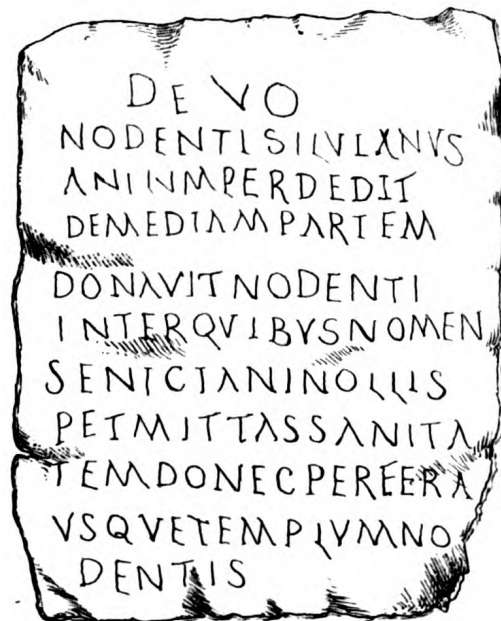 DEVO
NODENTISILVIANVS
ANILVMPERDEDIT
DEMEDIAMPARTEM
DONAVITNODENTI
INTERQVIBVSNOMEN
SENICIANINOLLIS
PETMITTASSANITA
TEMDONECPERFERA
VSQVETEMPLVMNO
DENTIS